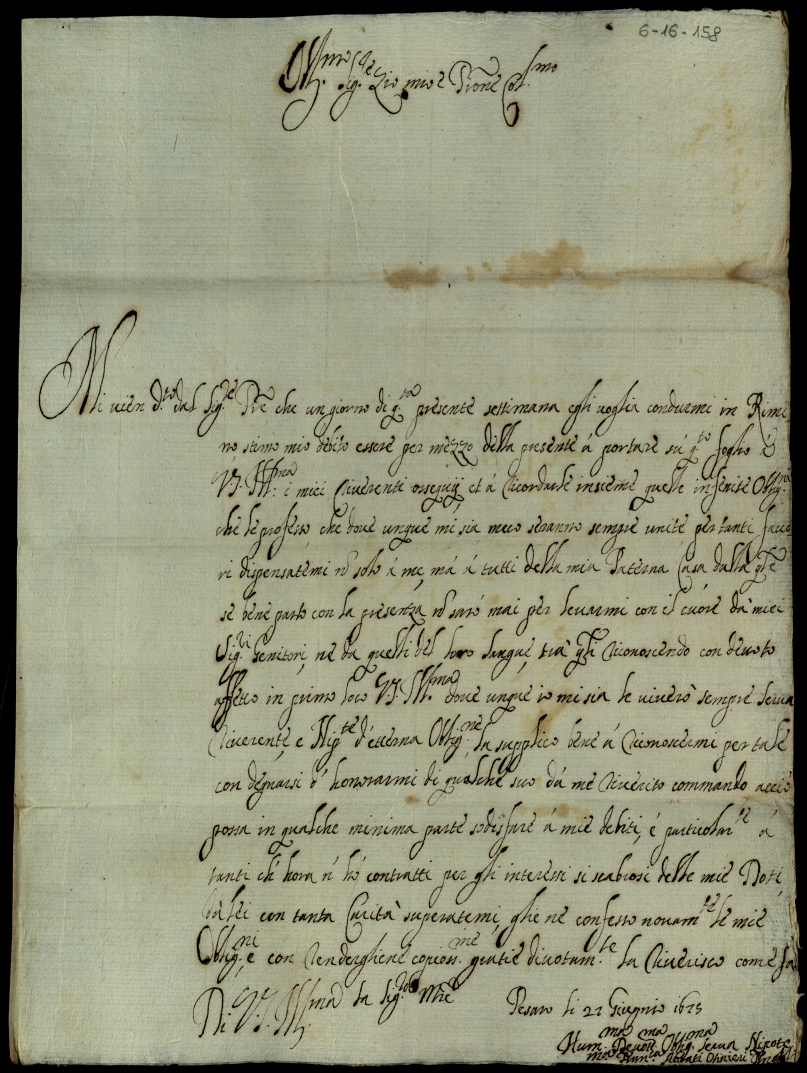 6-16-158
Ill.mo Sig.re Zio mio e Prone Col.mo
Mi vien d.to dal Sig.re Pre che un giorno di q.ta presente settimana egli voglia condurmi in Rimi
no stimo mio debito essere per mezzo della presente á portare sù q.to foglio á
V.S. Ill.ma i miei riverenti ossequij et á ricordarle insieme quelle infinite Oblig.ni
che le professo, che dove unque mi sia meco seranno sempre unite per tanti favo
ri dispensatemi nō solo á me, má á tutti della mia Paterna Casa dalla q.le
se bene parto con la presenza nō saró mai per levarmi con il cuore dà miei
Sig.ri Genitori, ne da quelli del loro sangue, trà q.li riconoscendo con devoto
affetto in primo loco V.S. Ill.ma dove unque io mi sia le viverò sempre serva
riverente, e Nip.te d'etterna Oblig.ne la supplico bene á riconoscermi per tale
con degnarsi d' honorarmi di qualche suo dá me riverito commando acciò
possa in qualche minima parte sodisfare á miei debiti, é particolar.te á
tanti ch' hora n' hó contratti per gli interessi si scabrosi delle mie Doti,
dà lei con tanta Carità superatemi, gliene confesso novam.te le mie
Oblig.ni, e con rendergliene copiosi.me gratie divotam.te la riverisco come fa
Di V.S. Ill.ma la Sig.ra Mre
Pesaro li 22 Giugnio 1675
Hum.ma Devot.ma Oblig.ma serva Nipote
Olivieri